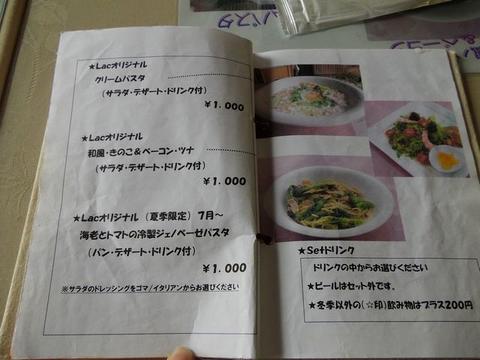 パスタ
★Lacオリジナル
クリームパスタ
(サラダ・デザート・ドリンク付)
¥1.000
★Lacオリジナル
和風・きのこ&ベーコン・ツナ
(サラダ・デザート・ドリンク付)
¥1.000
★Lacオリジナル (夏季限定) 7月〜
海老とトマトの冷製ジェノベーゼパスタ
(パン・デザート・ドリンク付)
¥1.000
※サラダのドレッシングをゴマ/イタリアンからお選びください
★Setドリンク
ドリンクの中からお選びください
★ビールはセット外です。
★冬季以外の(☆印)飲み物はプラス200円